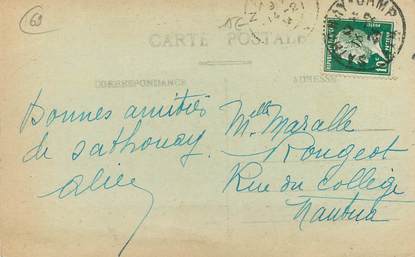 69
1E
CARTE POSTALE
CORRESPONDANCE
ADRESSE
SATHONAY-CAMP
Bonnes amitiés
de Sathonay
Alice
Melle Maralle
Rougeot
Rue du collège
Nantua